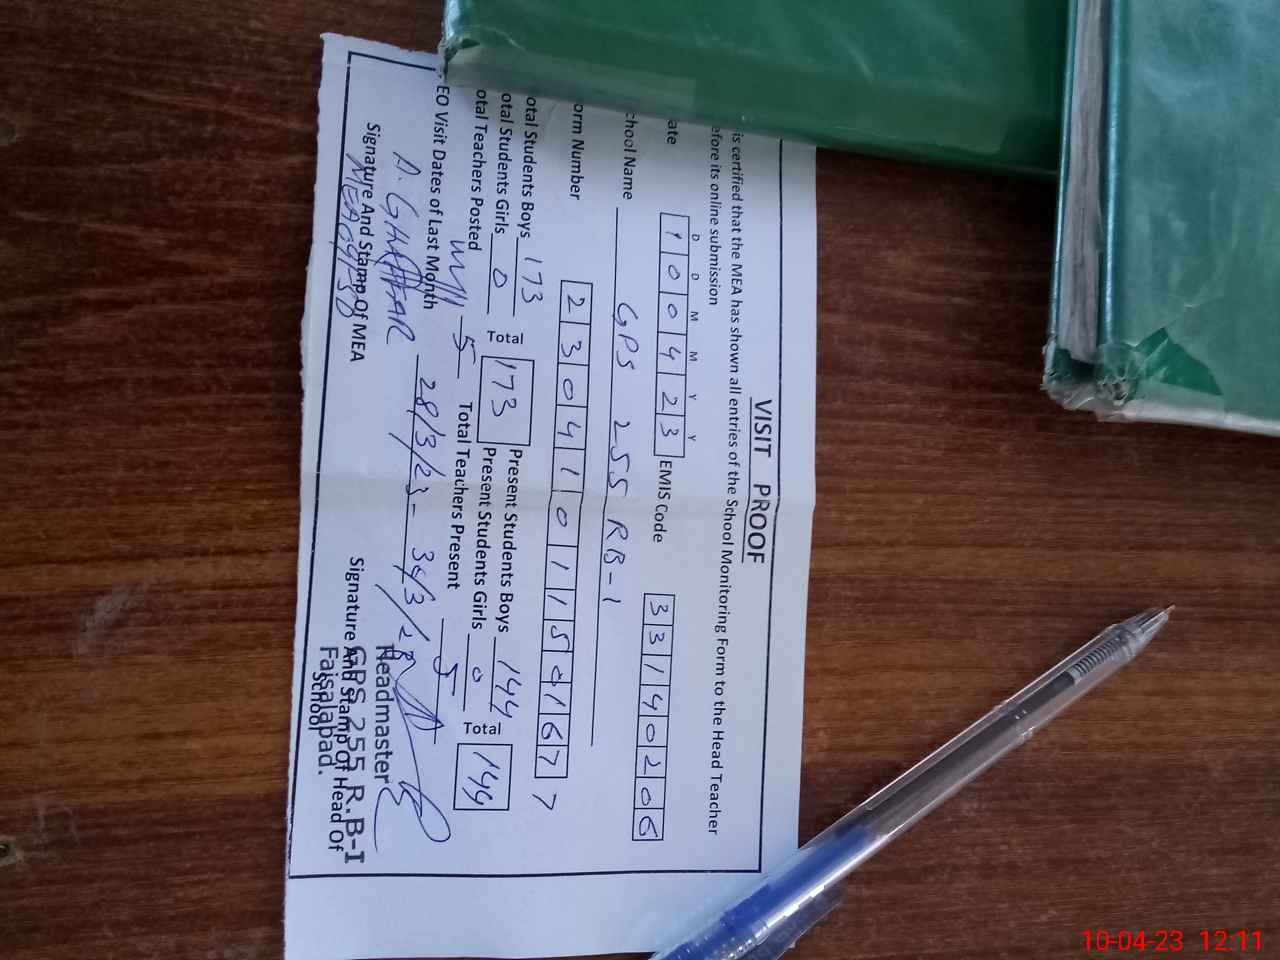 VISIT PROOF
is certified that the MEA has shown all entries of the School Monitoring Form to the Head Teacher
efore its online submission
D D M M Y Y
ate 1 0 0 4 2 3 EMIS Code 3 3 1 4 0 2 0 6
chool Name GPS 255 RB-1
orm Number 2 3 0 4 1 0 1 1 5 0 1 6 7 7
otal Students Boys 173 Total 173 Present Students Boys 144 Total 144
otal Students Girls 0 Present Students Girls 0
otal Teachers Posted 5 Total Teachers Present 5
EO Visit Dates of Last Month 28/3/23 - 30/3/23
A. GHAFFAR
Signature And Stamp Of MEA
Signature And Stamp Of Head Of
School
Headmaster
GPS 255 R.B-I
Faisalabad.
10-04-23 12:11